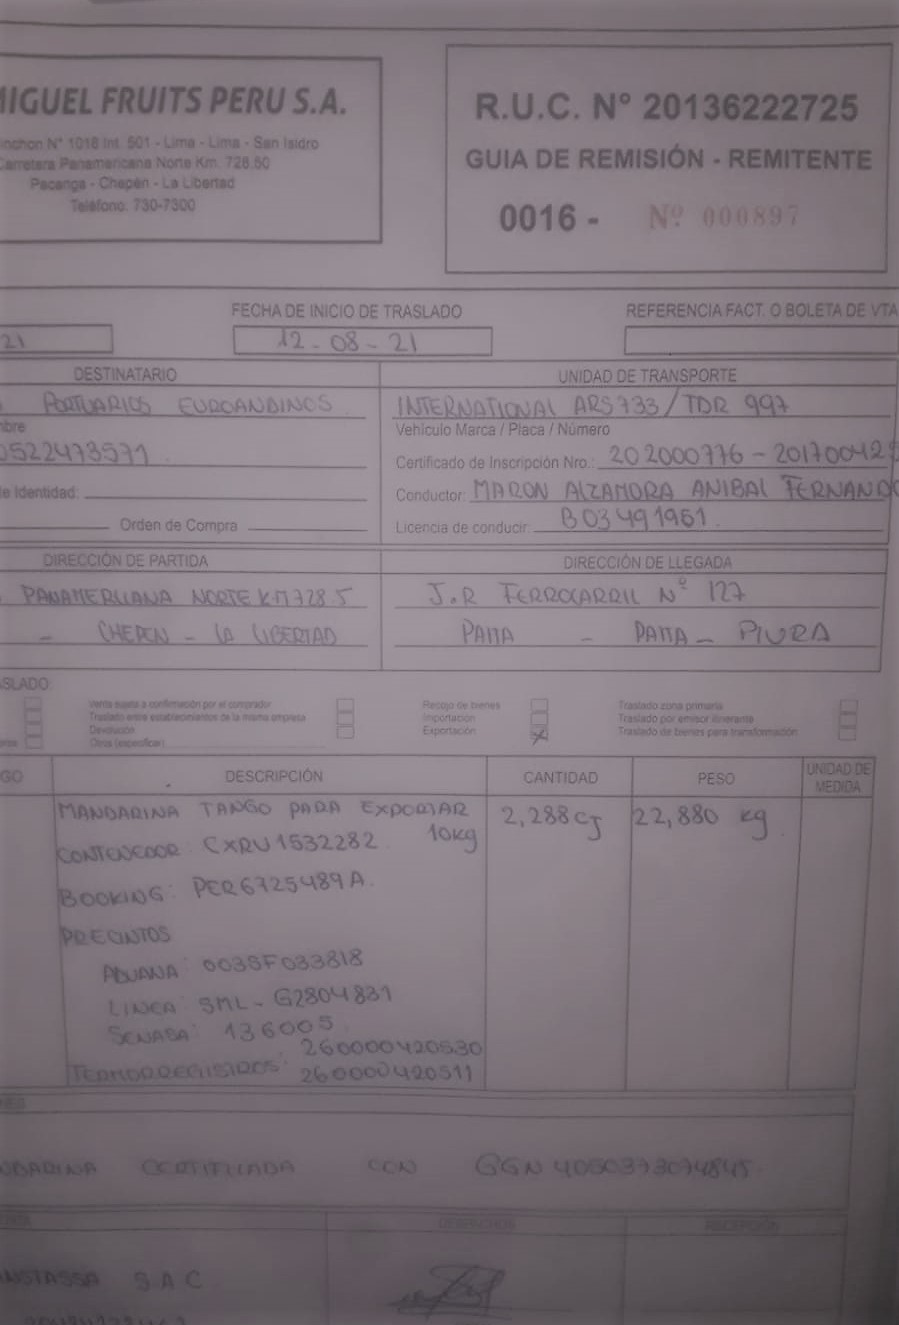 MIGUEL FRUITS PERU S.A.
Nº 1018 Int. 501 - Lima - Lima - San Isidro
Carretera Panamericana Norte Km. 728.50
Pacanga - Chepén - La Libertad
Teléfono: 730-7300
R.U.C. N° 20136222725
GUIA DE REMISIÓN - REMITENTE
0016 - Nº 000897
FECHA DE INICIO DE TRASLADO
REFERENCIA FACT. O BOLETA DE VTA
21
12-08-21
DESTINATARIO
UNIDAD DE TRANSPORTE
PORTUARIOS EUROANDINOS
INTERNATIONAL ARS733/TDR 997
Vehículo Marca / Placa / Número
0522473571
Certificado de Inscripción Nro.: 202000776 - 20170042
de Identidad:
Conductor: MARON ALZAMORA ANIBAL FERNANDO
Orden de Compra
Licencia de conducir: B03491951
DIRECCIÓN DE PARTIDA
DIRECCIÓN DE LLEGADA
PANAMERICANA NORTE KM728.5
J.R FERROCARRIL Nº 127
- CHEPEN - LA LIBERTAD
PAITA - PAITA - PIURA
TRASLADO:
Venta sujeta a confirmación por el comprador
Traslado entre establecimientos de la misma empresa
Devolución
Otros (especificar)
Recojo de bienes
Importación
Exportación
Traslado zona primaria
Traslado por emisor itinerante
Traslado de bienes para transformación
GO
DESCRIPCIÓN
CANTIDAD
PESO
UNIDAD DE MEDIDA
MANDARINA TANGO PARA EXPORTAR 10kg
2,288 CJ
22,880 kg
CONTENEDOR: CXRU1532282
BOOKING: PER6725489A.
PRECINTOS
ADUANA: 0035F033818
LINEA: SML-G2804831
SENASA: 136005
TERMORREGISTROS: 260000420530
260000420511
MANDARINA CERTIFICADA CON GGN 4050373074845
DESPACHOS
RECEPCIÓN
S.A.C